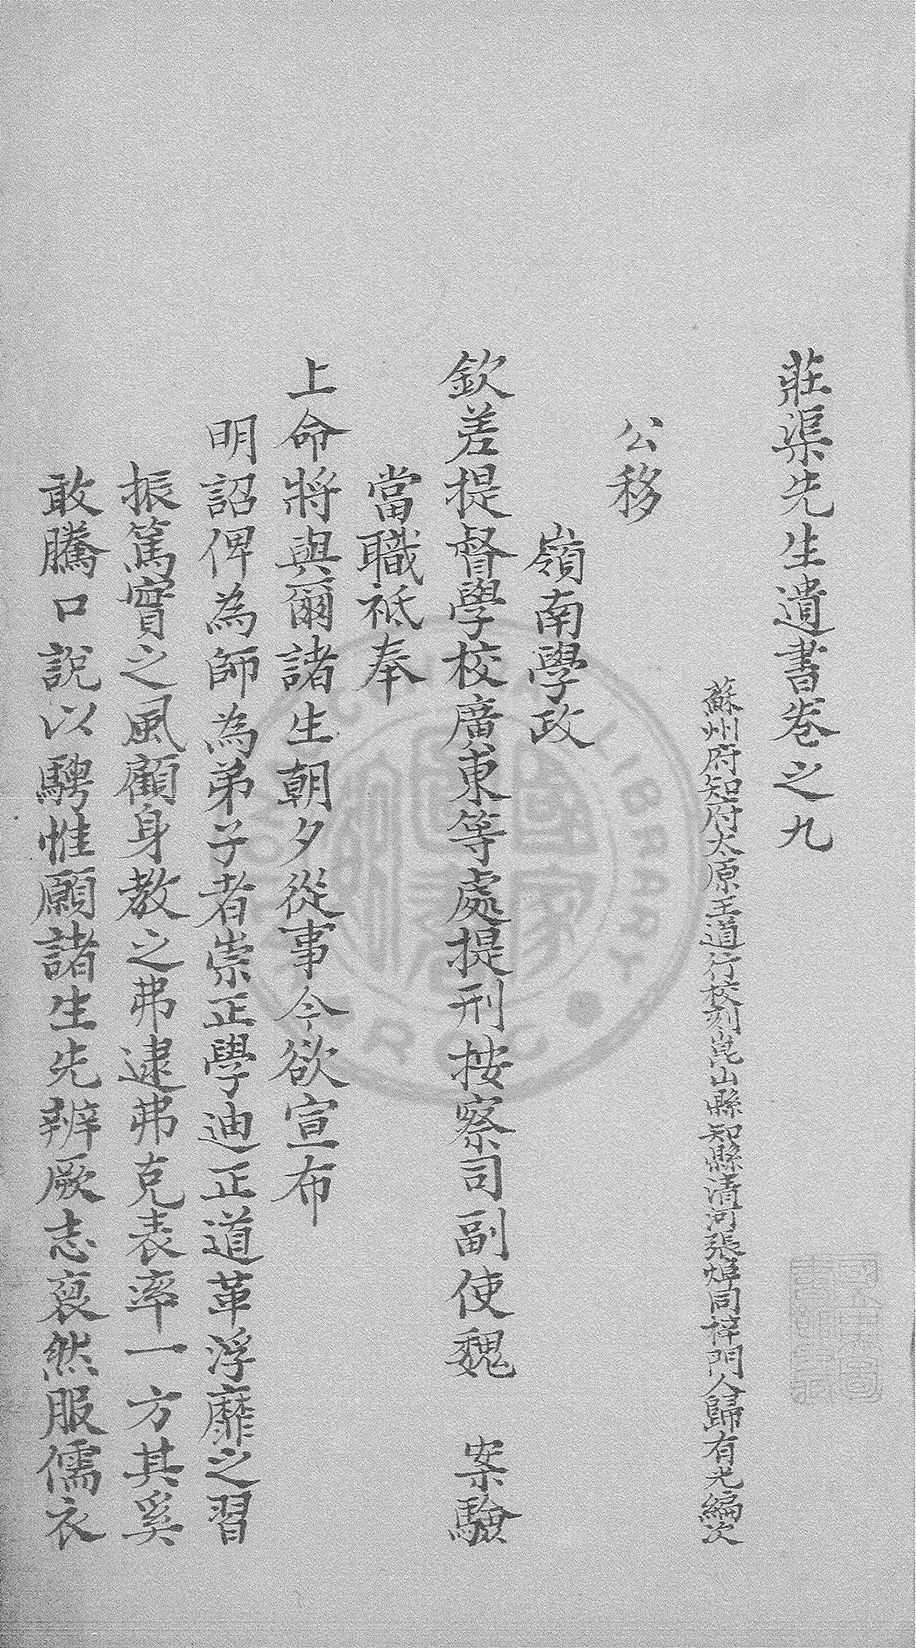 莊渠先生遺書卷之九
蘇州府知府太原王道行校刻崑山縣知縣清河張焯同梓門人歸有光編次
公移
嶺南學政
欽差提督學校廣東等處提刑按察司副使魏　案驗
當職祗奉
上命將與爾諸生朝夕從事今欲宣布
明詔俾為師為弟子者崇正學迪正道革浮靡之習
振篤實之風顧身教之弗逮弗克表率一方其奚
敢騰口說以騁惟願諸生先辨厥志裒然服儒衣
國家圖書
NATIONAL CENTRAL LIBRARY
R.O.C.